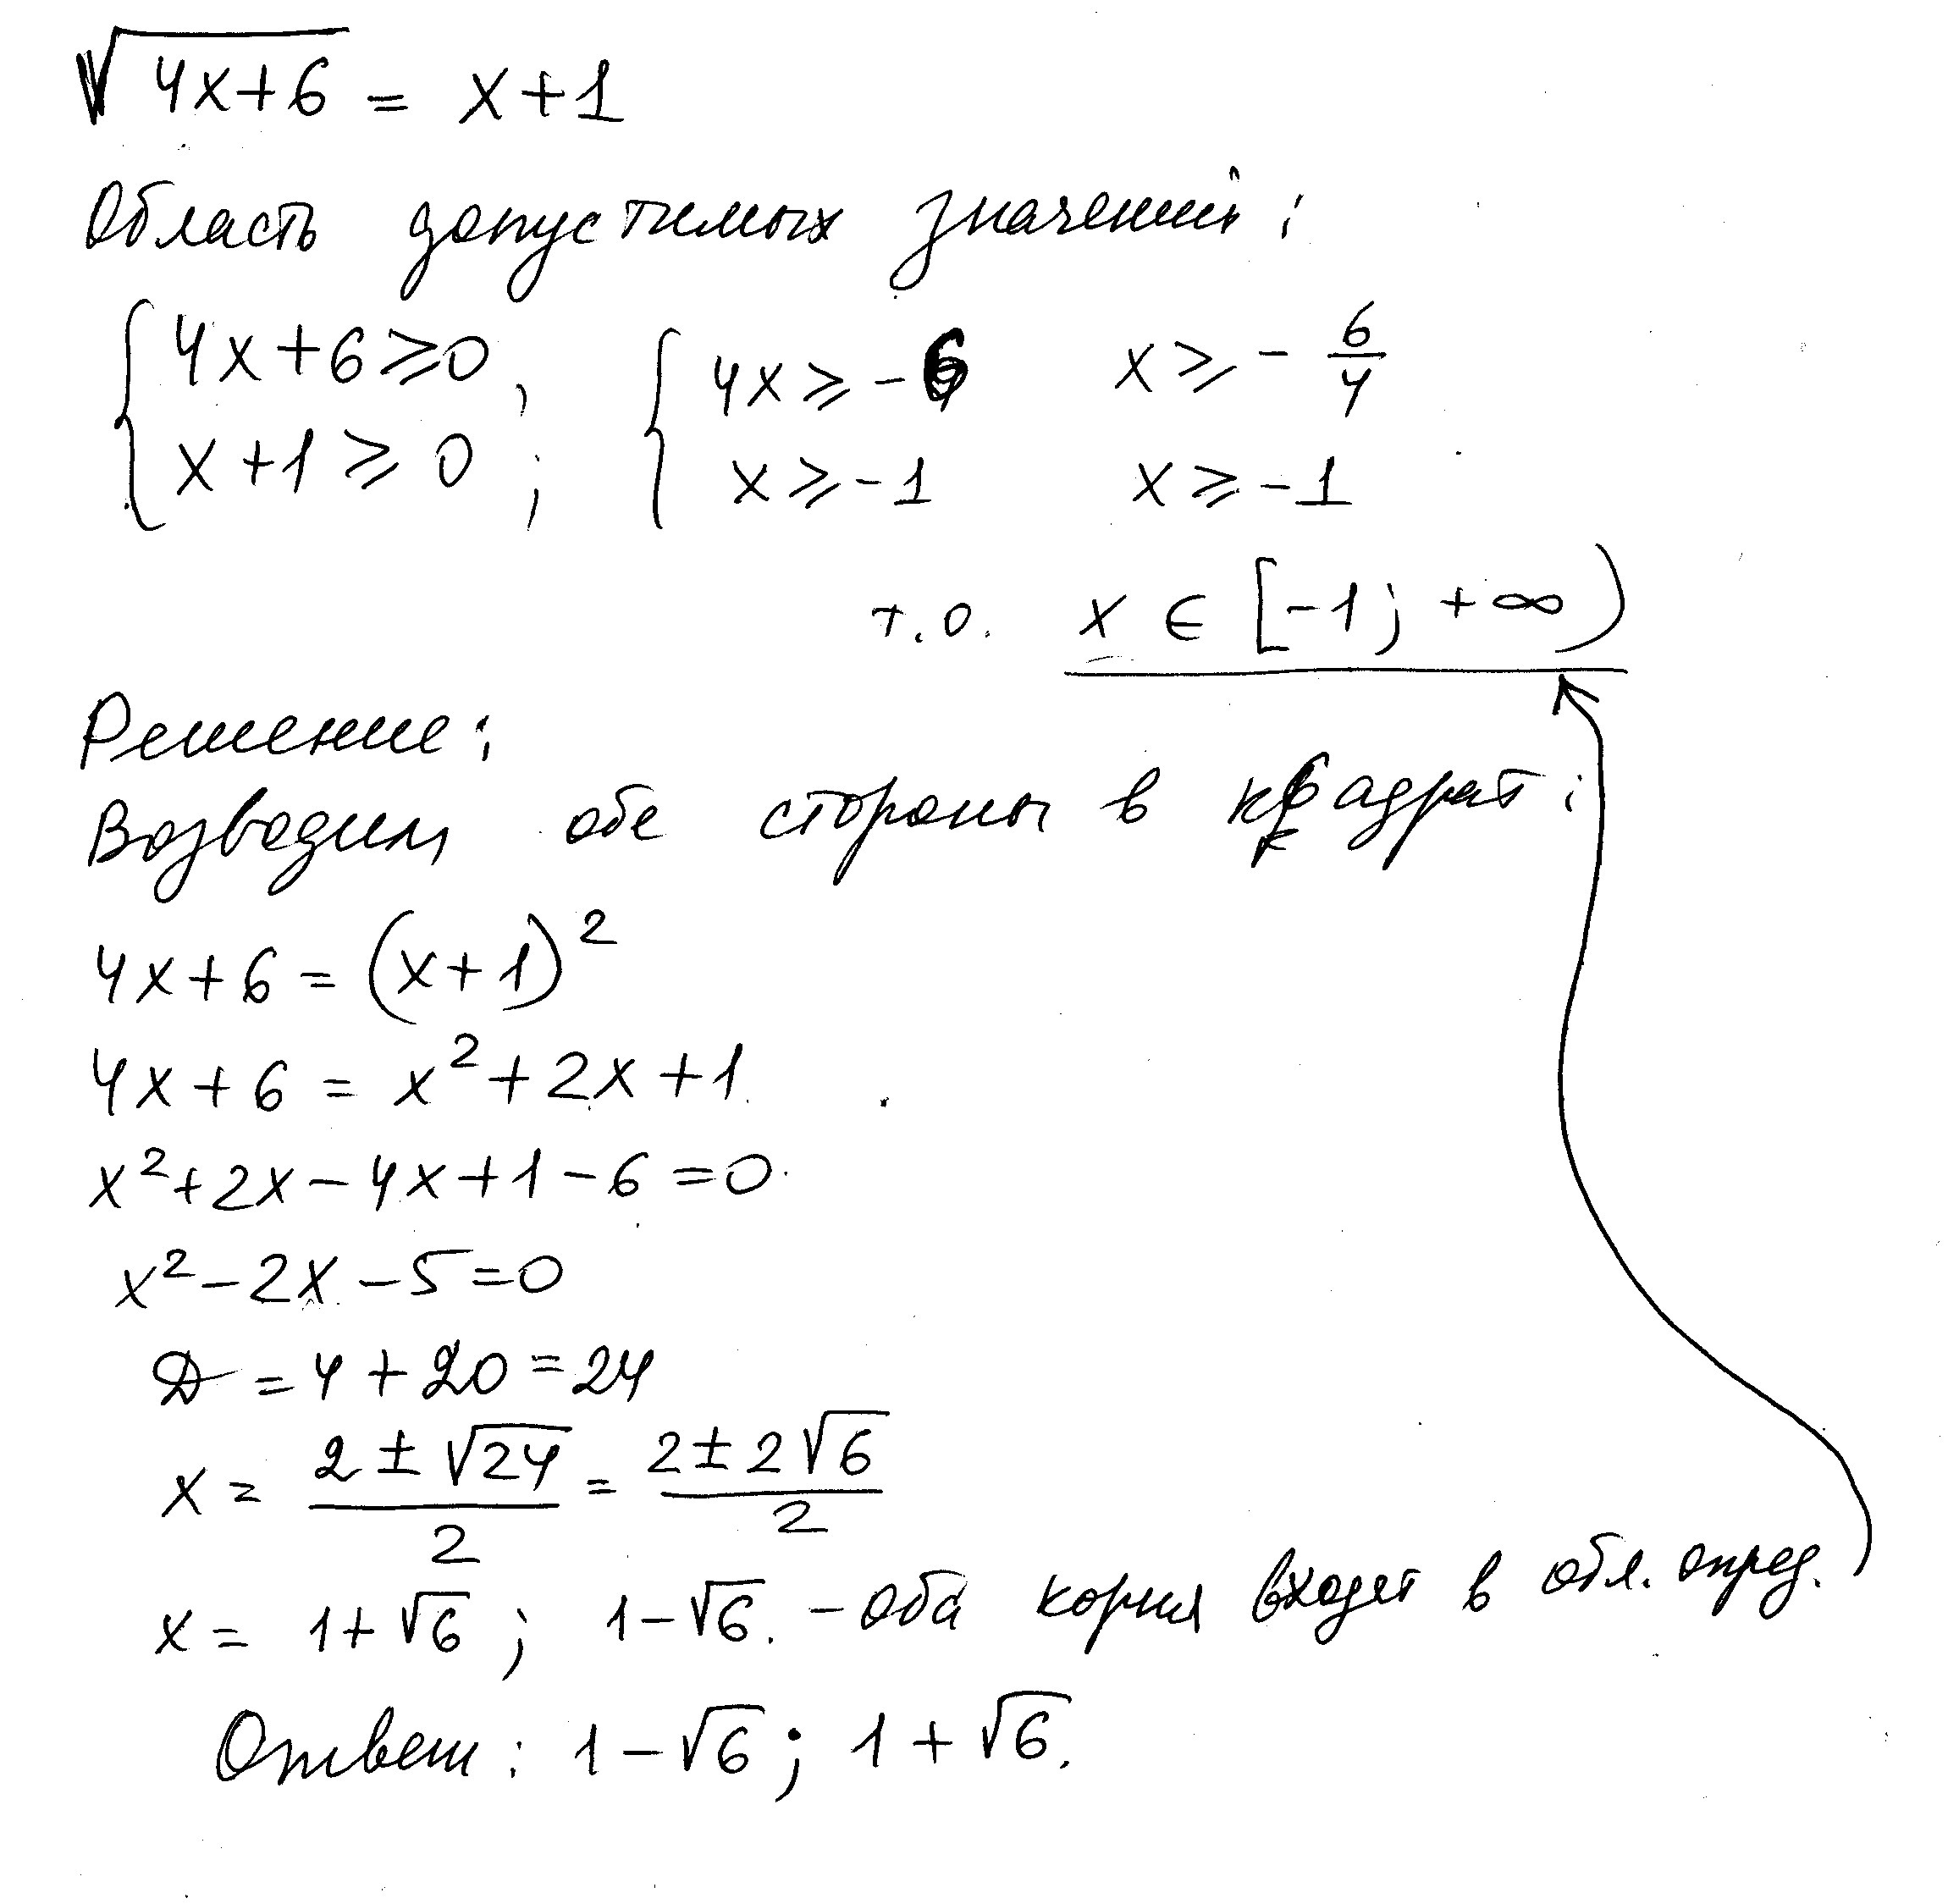 √4x+6 = x+1
Область допустимых значений:
{ 4x+6≥0, { 4x≥-6 x≥-6/4
x+1≥0; x≥-1 x≥-1
т.о. x ∈ [-1; +∞)
Решение:
Возводим обе стороны в квадрат:
4x+6=(x+1)²
4x+6=x²+2x+1
x²+2x-4x+1-6=0
x²-2x-5=0
D=4+20=24
x= (2±√24)/2 = (2±2√6)/2
x= 1+√6; 1-√6. - оба корня входят в обл. опред.
Ответ: 1-√6; 1+√6.